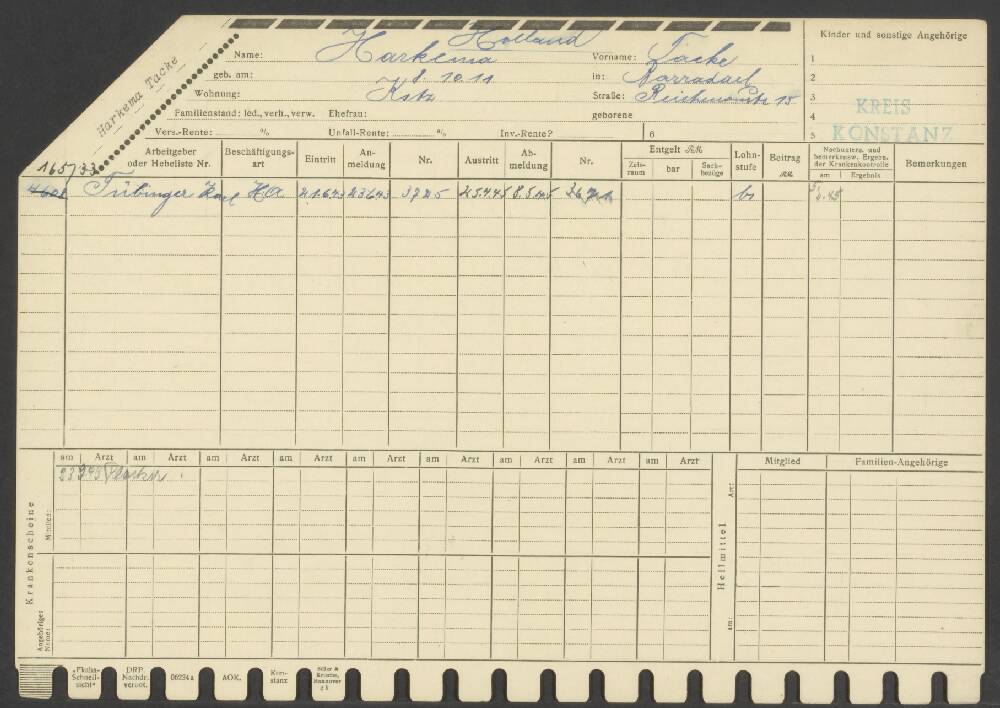 Holland
Harkema Tacke
Name: Harkema Vorname: Tacke
geb. am: 8.10.11 in:
Wohnung: Kstz Straße: 15
Familienstand: led., verh., verw. Ehefrau: geborene
Vers.-Rente: % Unfall-Rente: % Inv.-Rente? 6
Kinder und sonstige Angehörige
1
2
3
4
5
KREIS
KONSTANZ
165/33
Arbeitgeber oder Hebeliste Nr. Beschäftigungsart Eintritt Anmeldung Nr. Austritt Abmeldung Nr. Entgelt RM Zeitraum bar Sachbezüge Lohnstufe Beitrag RM Nachunters. und bemerkensw. Ergebn. der Krankenkontrolle am Ergebnis Bemerkungen
4608 Tübinger Karl HA 21.6.43 23.6.43 3725 25.4.45 8.5.45
am Arzt am Arzt am Arzt am Arzt am Arzt am Arzt am Arzt am Arzt am Arzt
Krankenscheine
Mitglied:
Angehörige:
Name:
Heilmittel
Art:
am:
Mitglied Familien-Angehörige
DRP. Nachdr. verbot.
06234a
AOK.
Konstanz